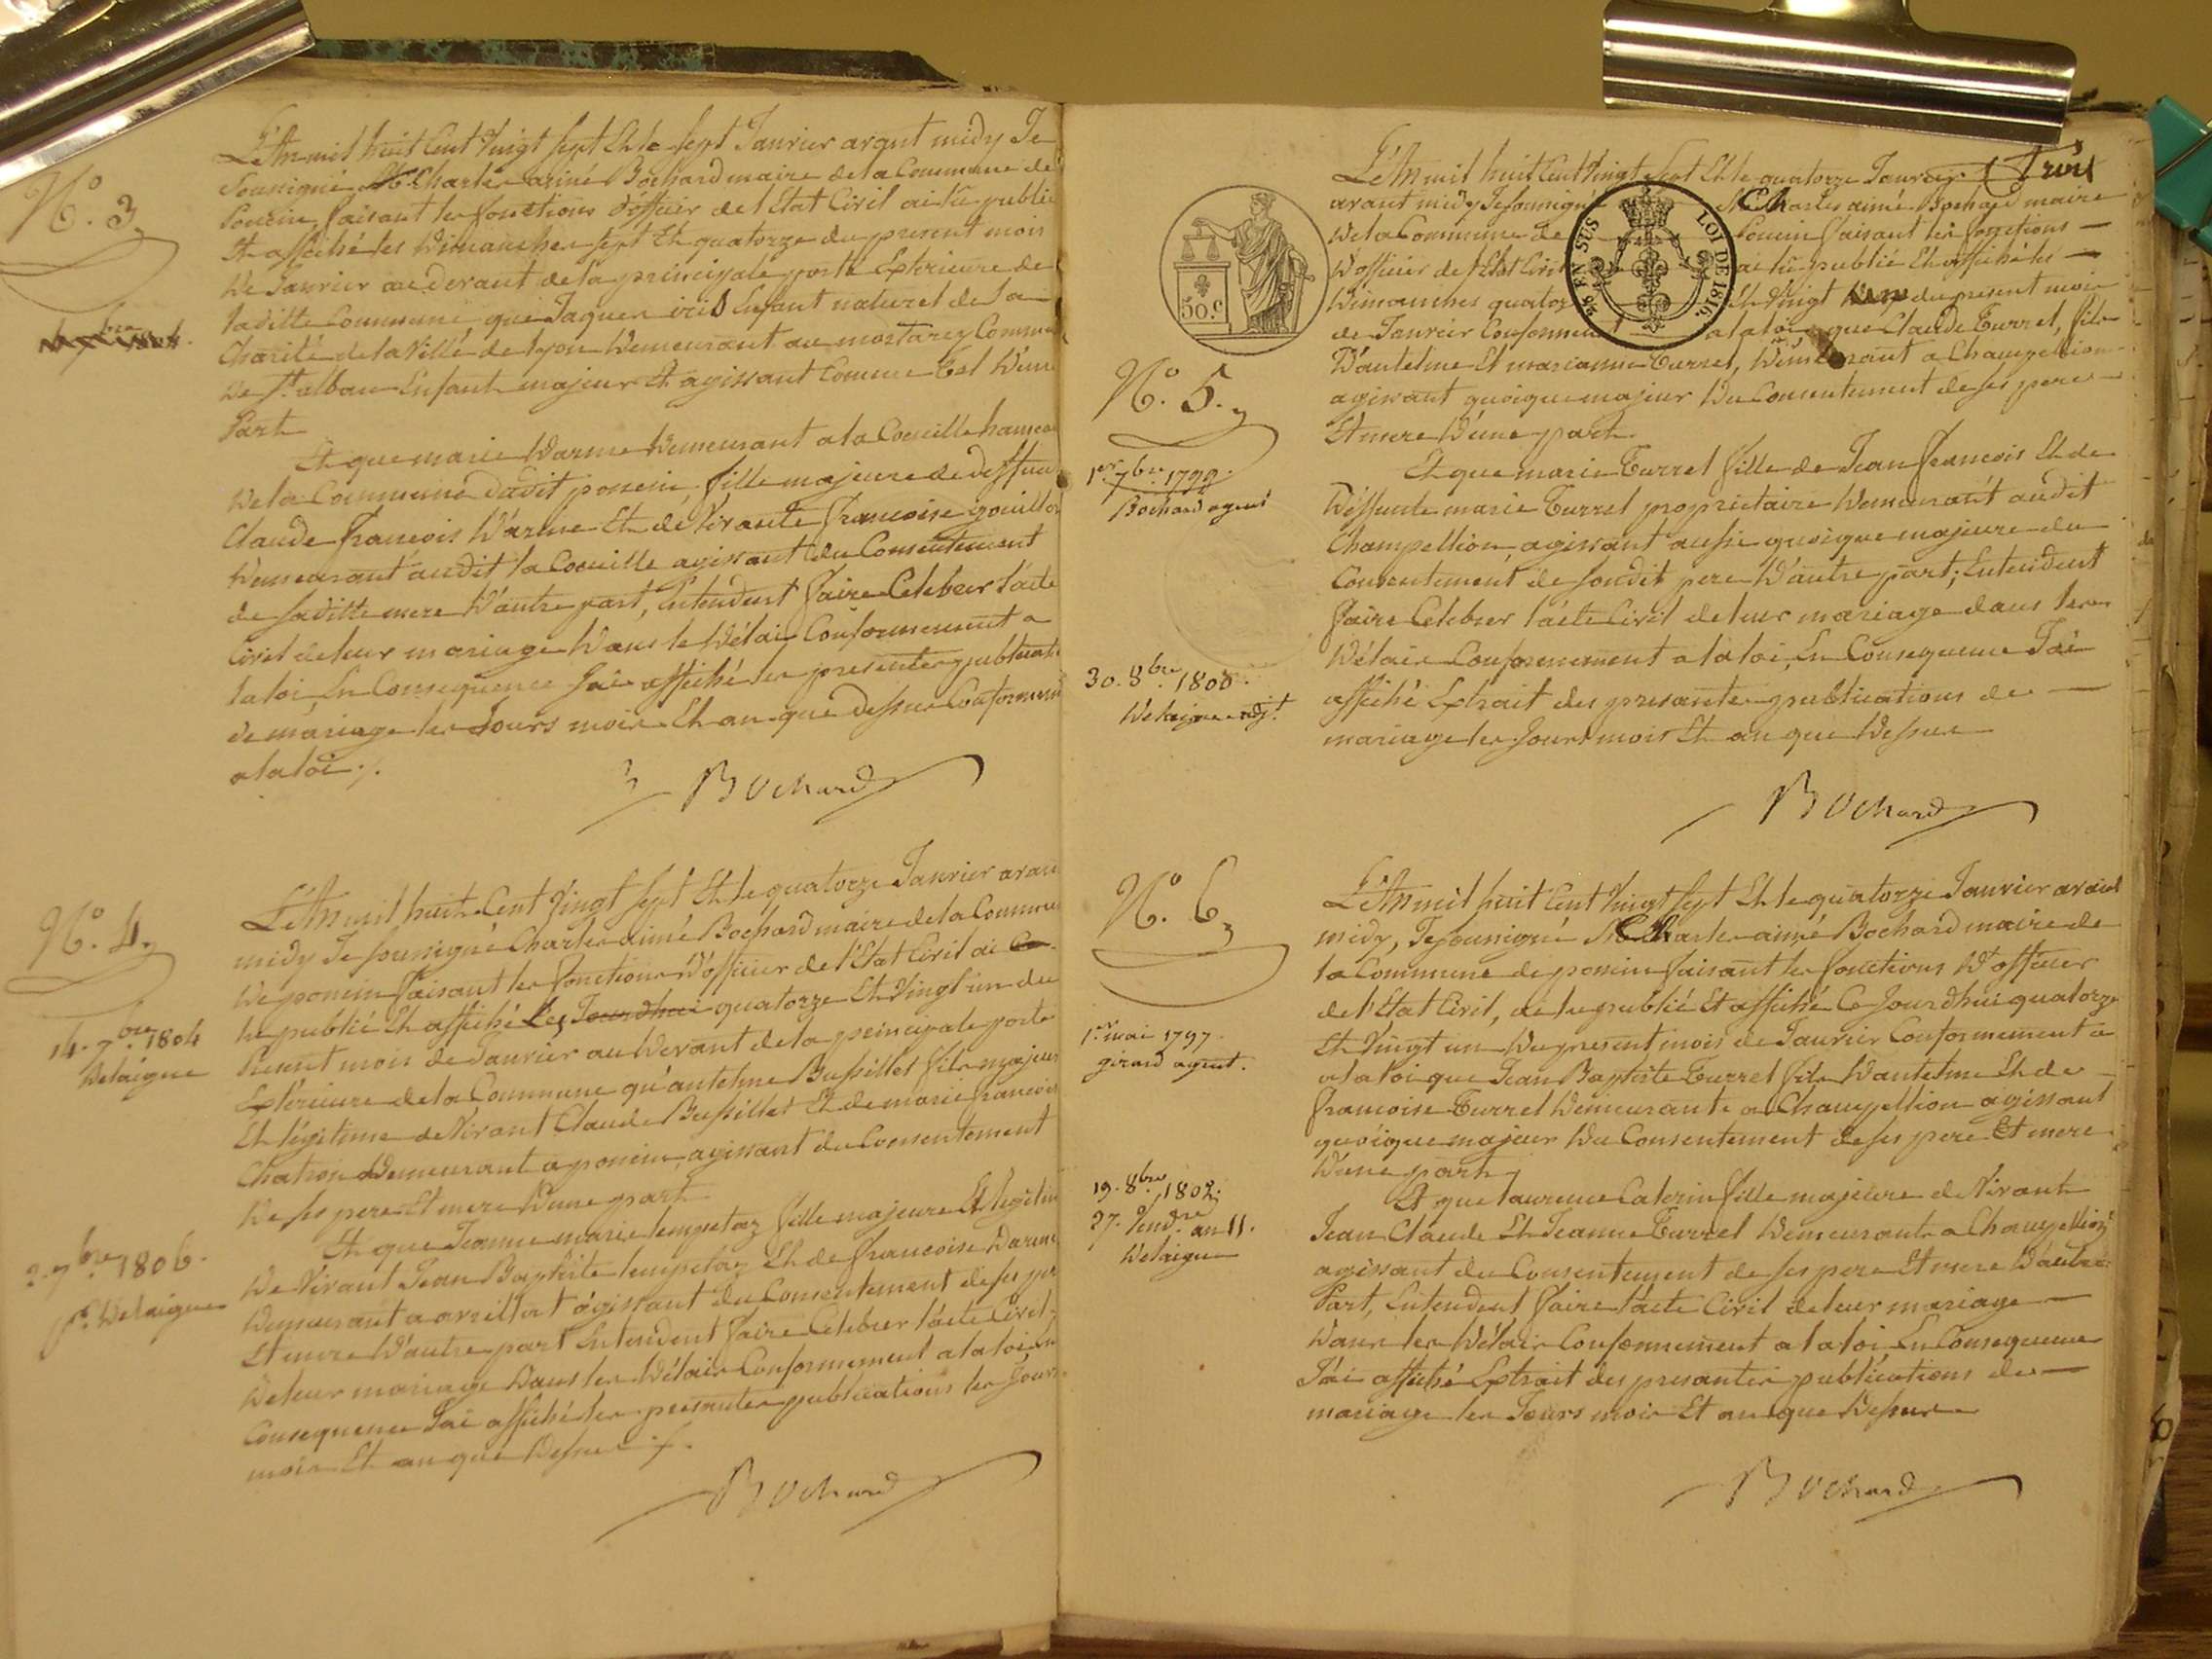 N.o 3
L'An mil huit Cent Vingt sept Et le sept Janvier avant midy Je
Soussigné Charles aimé Bochard maire de la Commune de
Poncin faisant les fonctions d'officier de l'Etat Civil ai lu publié
Et affiché les Dimanches sept Et quatorze du present mois
De Janvier au devant de la principale porte Exterieure de
laditte Commune que Jaques iris Enfant naturel de la
Charité de la Ville de lyon Demeurant au mortarey Commune
De St. alban Enfant majeur Et agissant Comme Est D'une
Part
Et que marie Darme Demeurant a la Coeuille hameau
De la Commune dudit poncin fille majeure de deffunt
Claude françois Darme Et de Vivante françoise gouillon
Demeurant audit la Coeuille agissant du Consentement
de saditte mere D'autre part, Entendent faire Celebrer l'acte
Civil de leur mariage Dans le Délai Conformement a
la loi En Consequence J'ai affiché les presentes publications
de mariage les Jours mois Et an que dessus Conformement
a la loi ./.
Bochard
N.o 4
14. 7bre 1804
Delaigue
2. 7bre 1806.
Delaigue
L'An mil huit Cent Vingt sept Et le quatorze Janvier avant
midy Je soussigné Charles aimé Bochard maire de la Commune
De poncin faisant les fonctions D'officier de l'Etat Civil ai Ce
lu publié Et affiché Les Jourdhui quatorze Et Vingt un du
Present mois de Janvier au Devant de la principale porte
Exterieure de la Commune qu'antelme Bussillet fils majeur
Et légitime de Vivant Claude Bussillet Et de marie françoise
Chatron Demeurant a poncin, agissant du Consentement
De ses pere Et mere D'une part
Et que Jeanne marie lempetaz fille majeure Et legitime
De Vivant Jean Baptiste lempetaz Et de francoise Darme
Demeurant a agissant du Consentement de ses pere
Et mere D'autre part Entendent faire Celebrer l'acte Civil
De leur mariage Dans les Délais Conformement a la loi En
Consequence J'ai affiché les presantes publications les Jours
mois Et an que Dessus ./.
Bochard
Trois
50.C
EN SUS
LOI DE 1816.
N.o 5.
1er. 7bre. 1799.
Bochard agent
30. 8bre. 1808.
Delaigue adjt.
L'An mil huit Cent Vingt sept Et le quatorze Janvier
avant midy Je soussigné Charles aimé Bochard maire
De la Commune de Poncin faisant les fonctions
D'officier de l'Etat Civil ai lu publié Et affiché les
Dimanches quatorze Et Vingt un du present mois
de Janvier Conformement a la loi que Claude Turrel, fils
D'antelme Et marianne Turrel, Demeurant a Champellion
agissant quoique majeur Du Consentement de ses pere
Et mere D'une part.
Et que marie Turrel fille de Jean françois Et de
Déffunte marie Turrel proprietaire Demeurant audit
Champellion agissant aussi quoique majeure du
Consentement de sondit pere D'autre part; Entendent
faire Celebrer l'acte Civil de leur mariage dans les
Délais Conformement a la loi En Consequence J'ai
affiché Extrait des presantes publications de
mariage les Jours mois Et an que Dessus
Bochard
N.o 6
1er. mai 1797.
girard agent.
19. 8bre. 1802.
27. Vendre. an 11.
Delaigue
L'An mil huit Cent Vingt sept Et le quatorze Janvier avant
midy, Je soussigné Charles aimé Bochard maire de
la Commune de poncin faisant les fonctions D'officier
de l'Etat Civil, ai lu publié Et affiché Ce Jourdhui quatorze
Et Vingt un Du present mois de Janvier Conformement a
a la loi que Jean Baptiste Turrel fils D'antelme Et de
francoise Turrel Demeurante a Champellion agissant
quoique majeur Du Consentement de ses pere Et mere
D'une part
Et que laurence Caterin fille majeure de Vivant
Jean Claude Et Jeanne Turrel Demeurante a Champellion
agissant du Consentement de ses pere Et mere D'autre
Part, Entendent faire l'acte Civil de leur mariage
Dans les Délais Conformement a la loi En Consequence
J'ai affiché Extrait des presantes publications de
mariage les Jours mois Et an que Dessus
Bochard